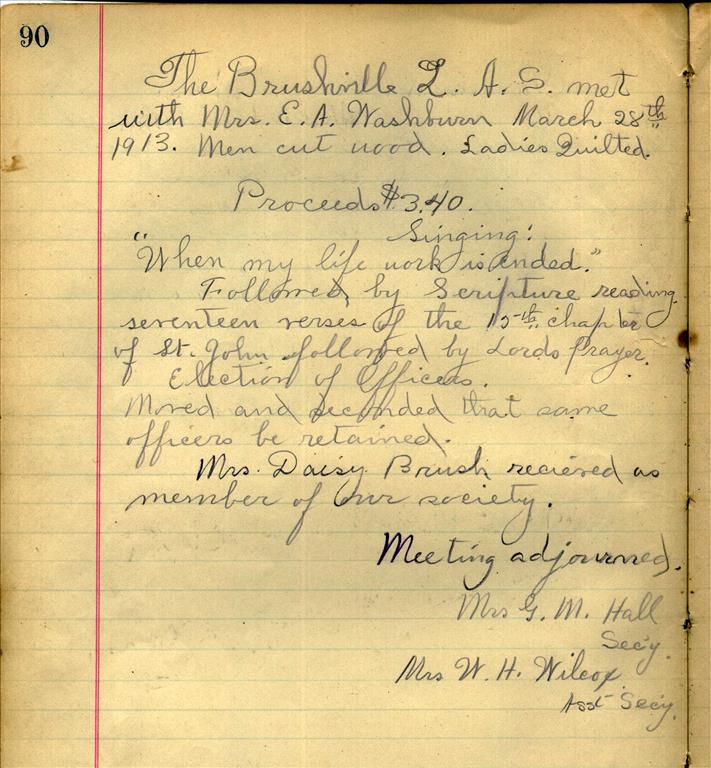 90
The Brushville L. A. S. met
with Mrs. E. A. Washburn March 28th
1913. Men cut wood. Ladies Quilted.
Proceeds $3.40.
Singing:
"When my life work is ended."
Followed by Scripture reading
seventeen verses of the 15th chapter
of St. John followed by Lords Prayer.
Election of Officers.
Moved and seconded that same
officers be retained.
Mrs. Daisy Brush recieved as
member of Our society.
Meeting adjourned.
Mrs G. M. Hall
Sec'y.
Mrs W. H. Wilcox
Asst Sec'y.